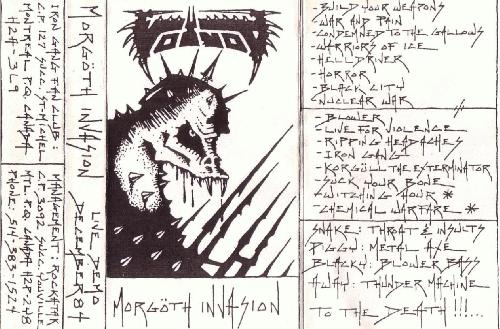 IRON GANG FANCLUB:
C.P. 127 SUCC. ST-MICHEL
MONTREAL P.Q. CANADA
H2A-3L9
MANAGEMENT: ROCKATAK
C.P. 3092 SUCC. YOUVILLE
MTL P.Q. CANADA H2P-2Y8
PHONE. 514-383-1524
MORGÖTH INVASION
LIVE DEMO
DECEMBER 84
VOIVOD
MORGÖTH INVASION
-BUILD YOUR WEAPONS
-WAR AND PAIN
-CONDEMNED TO THE GALLOWS
-WARRIORS OF ICE
-HELLDRIVER
-HORROR
-BLACK CITY
-NUCLEAR WAR
-BLOWER
-LIVE FOR VIOLENCE
-RIPPING HEADACHES
-IRON GANG
-KORGÜLL THE EXTERMINATOR
-SUCK YOUR BONE
-WITCHING HOUR *
-CHEMICAL WARFARE *
SNAKE: THROAT & INSULTS
PIGGY: METAL AXE
BLACKY: BLOWER BASS
AWAY: THUNDER MACHINE
TO THE DEATH!!!...